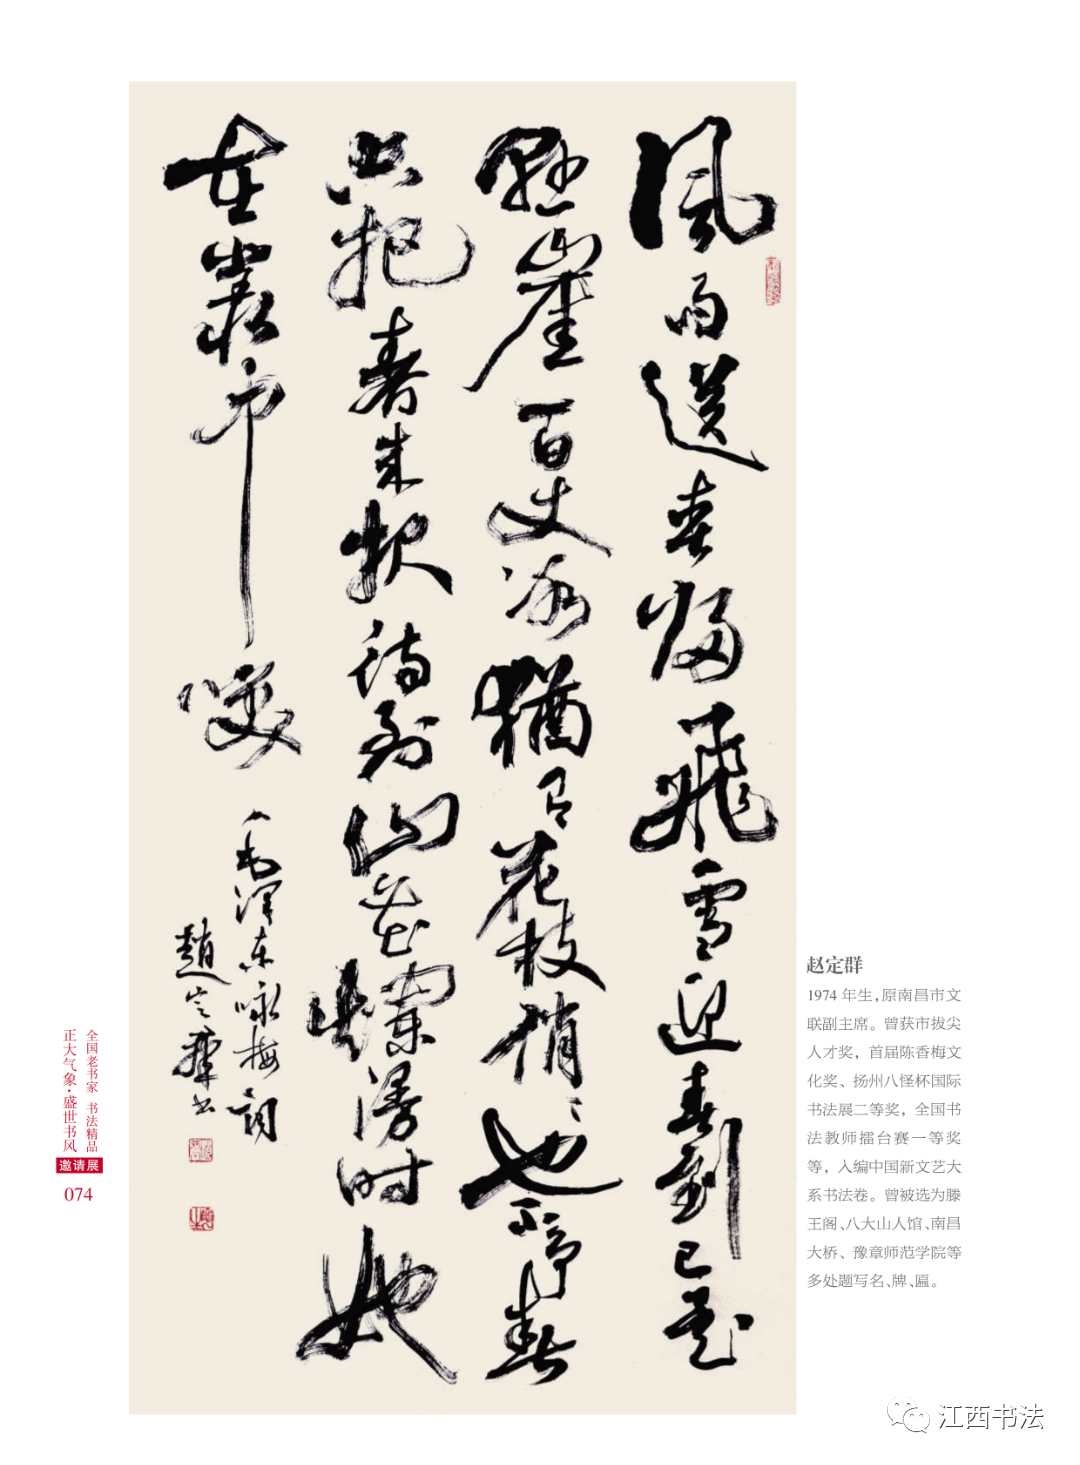 風雨送春歸飛雪迎春到已是
懸崖百丈冰猶有花枝俏〻也不爭春
只把春来報待到山花爛漫时她
在叢中笑
毛澤东咏梅詞
趙定群书
赵定群
1974 年生，原南昌市文
联副主席。曾获市拔尖
人才奖，首届陈香梅文
化奖、扬州八怪杯国际
书法展二等奖，全国书
法教师擂台赛一等奖
等，入编中国新文艺大
系书法卷。曾被选为滕
王阁、八大山人馆、南昌
大桥、豫章师范学院等
多处题写名、牌、匾。
全国老书家 书法精品
正大气象·盛世书风
邀请展
074
江西书法